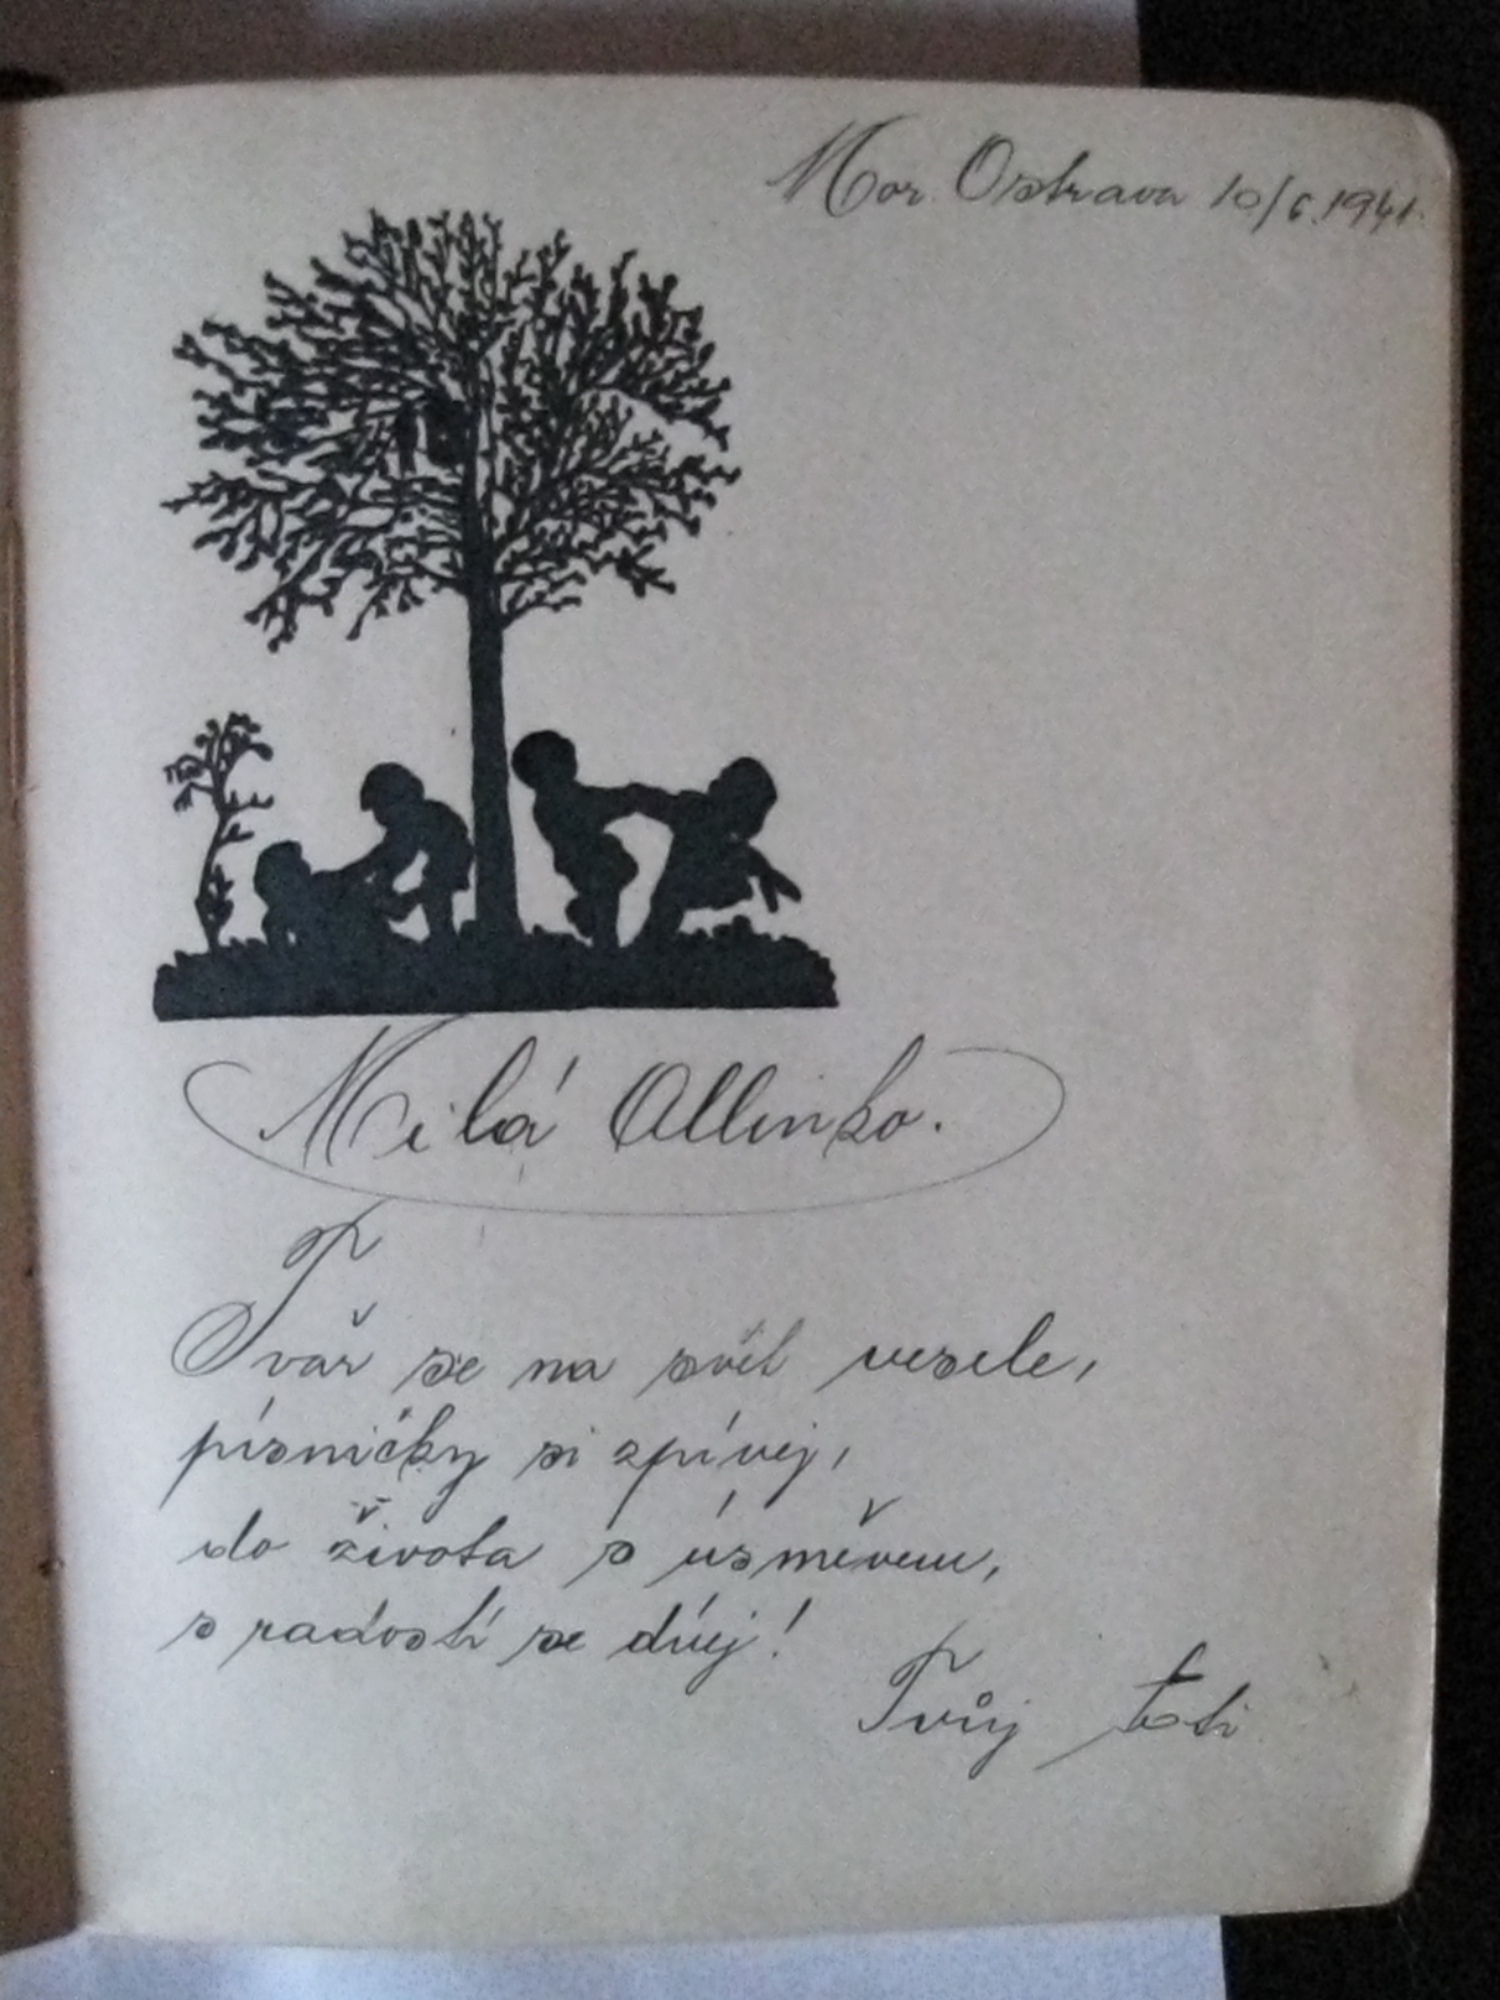 Mor. Ostrava 10/6.1941.
Milá Ollinko.
Tvař se na svět vesele,
písničky si zpívej,
do života s úsměvem,
s radostí se dívej!
Tvůj